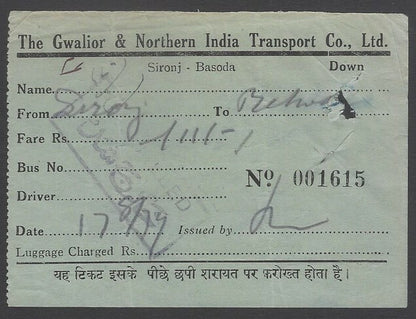 The Gwalior & Northern India Transport Co., Ltd.
Sironj - Basoda Down
Name
From Sironj To
Fare Rs. /11/-
Bus No
Driver No. 001615
Date 17 8/49 Issued by
Luggage Charged Rs.
यह टिकट इसके पीछे छपी शरायत पर फ़रोख्त होता है।